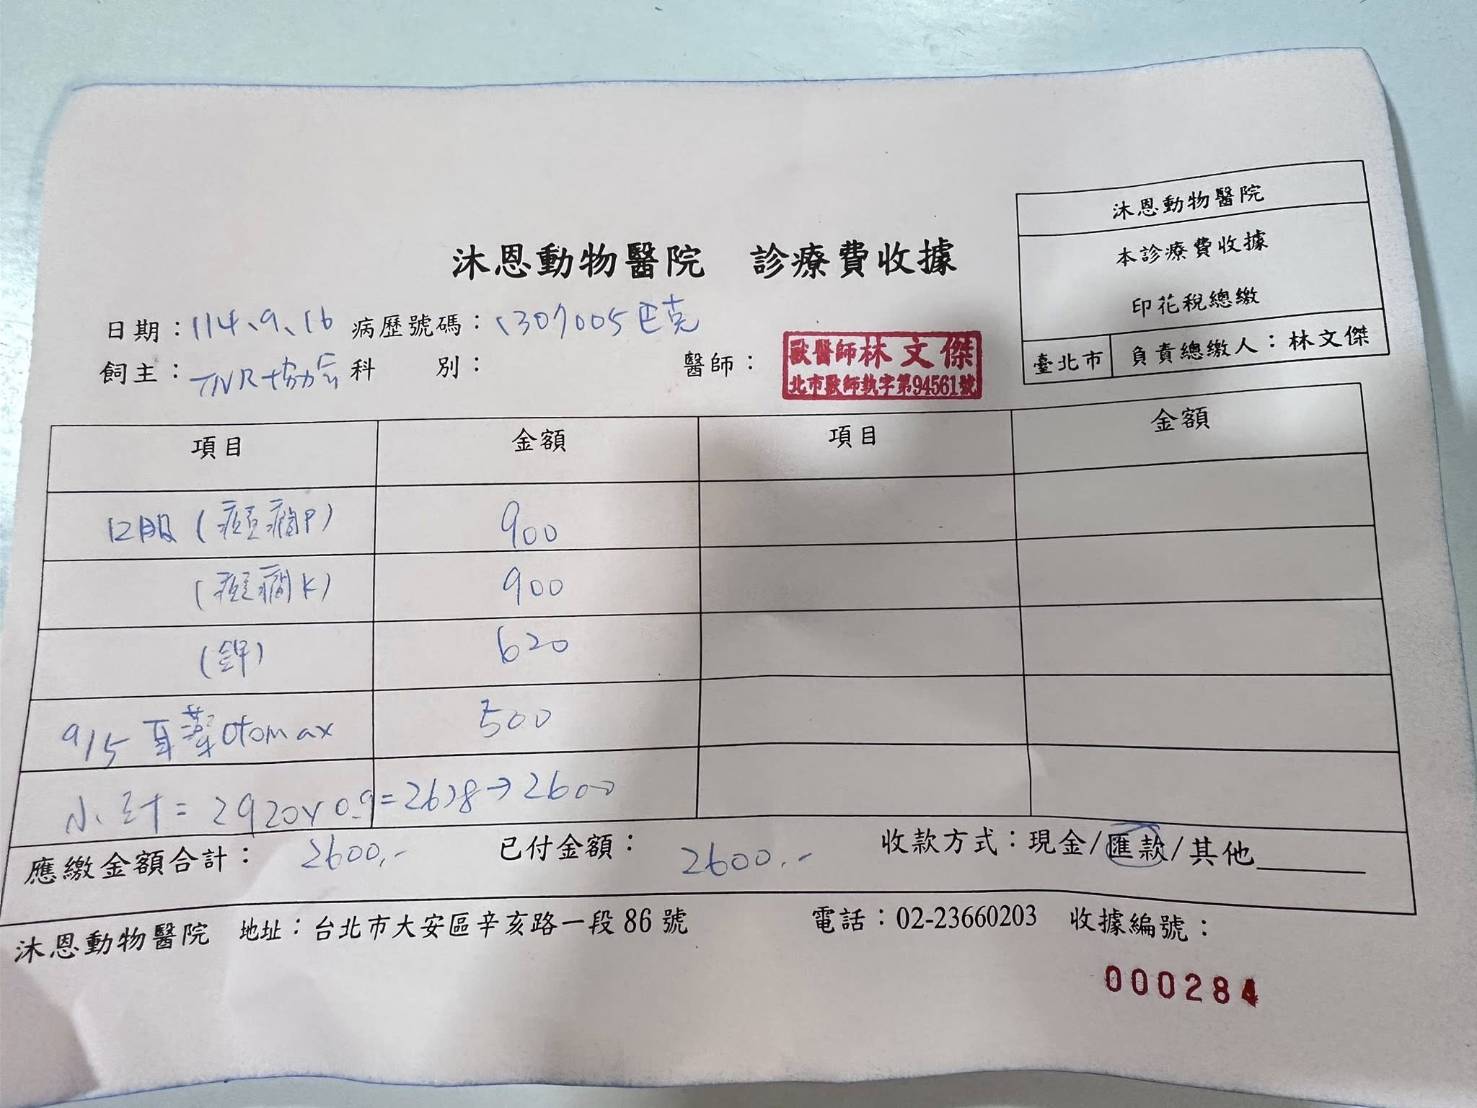 沐恩動物醫院
本診療費收據
印花稅總繳
臺北市 負責總繳人：林文傑
沐恩動物醫院 診療費收據
日期：114、9、16 病歷號碼：1307005 巴克
飼主：TNR協會 科 別： 醫師：
獸醫師林文傑
北市獸師執字第94561號
項目 金額 項目 金額
口服(癲癇P) 900
(癲癇K) 900
(鉀) 620
9/15 耳藥Otomax 500
小計=2920×0.9=2628→2600
應繳金額合計： 2600,- 已付金額： 2600,- 收款方式：現金/匯款/其他
沐恩動物醫院 地址：台北市大安區辛亥路一段 86 號 電話：02-23660203 收據編號：
000284